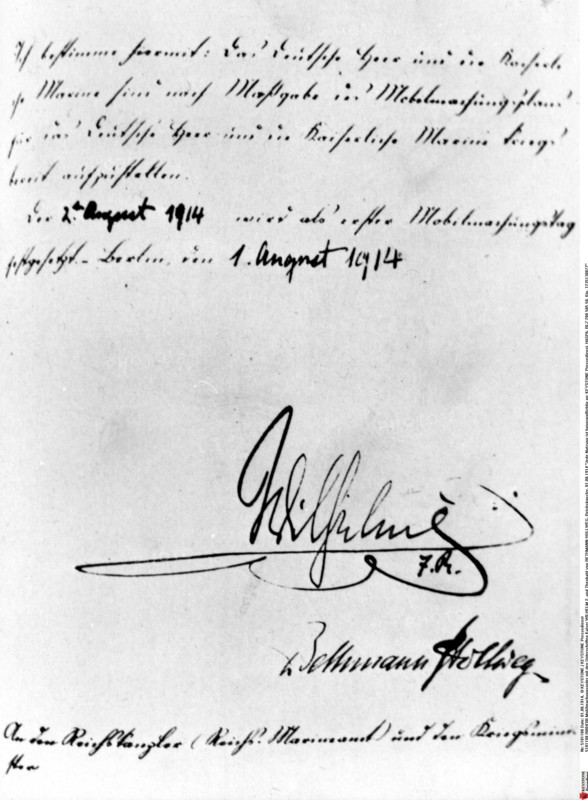 Ich bestimme hiermit: Das Deutsche Heer und die Kaiserli
che Marine sind nach Maßgabe des Mobilmachungsplans
für das Deutsche Heer und die Kaiserliche Marine kriegs
bereit aufzustellen.
Der 2te August 1914 wird als erster Mobilmachungstag
festgesetzt. Berlin, den 1. August 1914
Wilhelm
I.R.
v Bethmann Hollweg
An den Reichskanzler (Reichs-Marineamt) und den Kriegsmini
ster